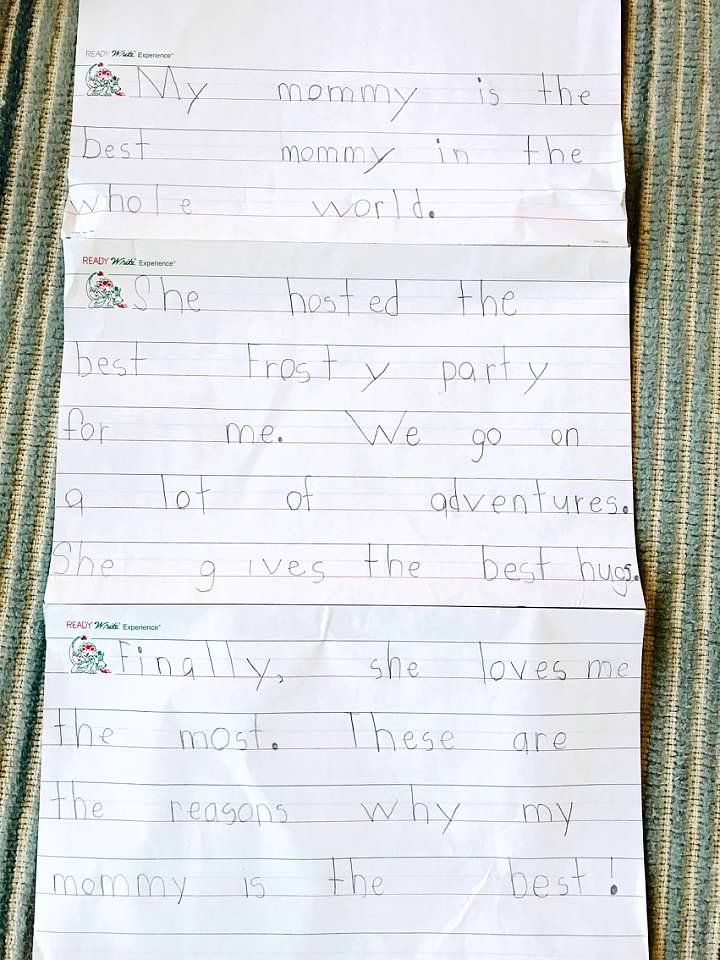 READY Write Experience®
My mommy is the
best mommy in the
whole world.
READY Write Experience®
She hosted the
best Frosty party
for me. We go on
a lot of adventures.
She gives the best hugs.
READY Write Experience®
Finally, she loves me
the most. These are
the reasons why my
mommy is the best!